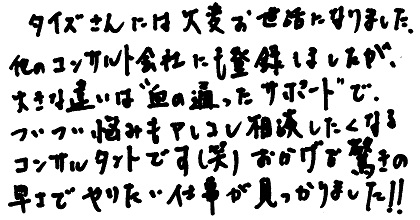 タイズさんには大変お世話になりました。
他のコンサルト会社にも登録しましたが、
大きな違いは"血の通ったサポート"で、
ついつい悩みもアレコレ相談したくなる
コンサルタントです(笑)おかげで驚きの
早さでやりたい仕事が見つかりました!!